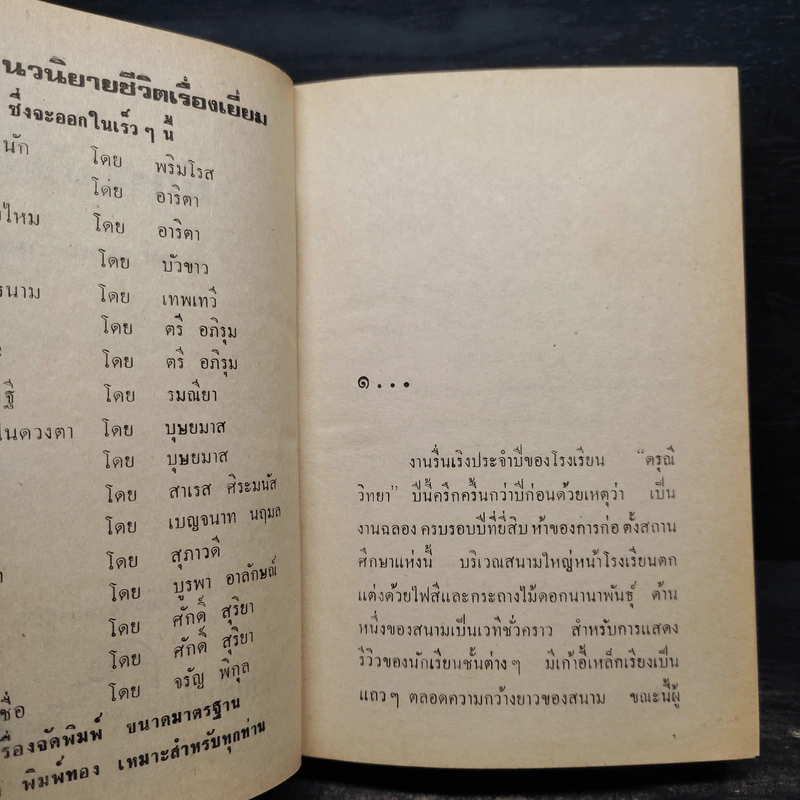 นวนิยายชีวิตเรื่องเยี่ยม
ซึ่งจะออกในเร็ว ๆ นี้
นัก โดย พริมโรส
โดย อาริตา
ไหม โดย อาริตา
โดย บัวขาว
นาม โดย เทพเทวี
โดย ตรี อภิรุม
โดย ตรี อภิรุม
ฐี โดย รมณียา
ในดวงตา โดย บุษยมาส
โดย บุษยมาส
โดย สาเรส ศิระมนัส
โดย เบญจนาท นฤมล
โดย สุภาวดี
โดย บูรพา อาลักษณ์
โดย ศักดิ์ สุริยา
โดย ศักดิ์ สุริยา
ชื่อ โดย จรัญ พิกุล
รื่องจัดพิมพ์ ขนาดมาตรฐาน
พิมพ์ทอง เหมาะสำหรับทุกท่าน
๑...
งานรื่นเริงประจำปีของโรงเรียน "ดรุณี
วิทยา" ปีนี้ครึกครื้นกว่าปีก่อนด้วยเหตุว่า เป็น
งานฉลอง ครบรอบปีที่ยี่สิบ ห้าของการก่อ ตั้งสถาน
ศึกษาแห่งนี้ บริเวณสนามใหญ่หน้าโรงเรียนตก
แต่งด้วยไฟสีและกระถางไม้ดอกนานาพันธุ์ ด้าน
หนึ่งของสนามเป็นเวทีชั่วคราว สำหรับการแสดง
รีวิวของนักเรียนชั้นต่าง ๆ มีเก้าอี้เหล็กเรียงเป็น
แถว ๆ ตลอดความกว้างยาวของสนาม ขณะนี้ผู้